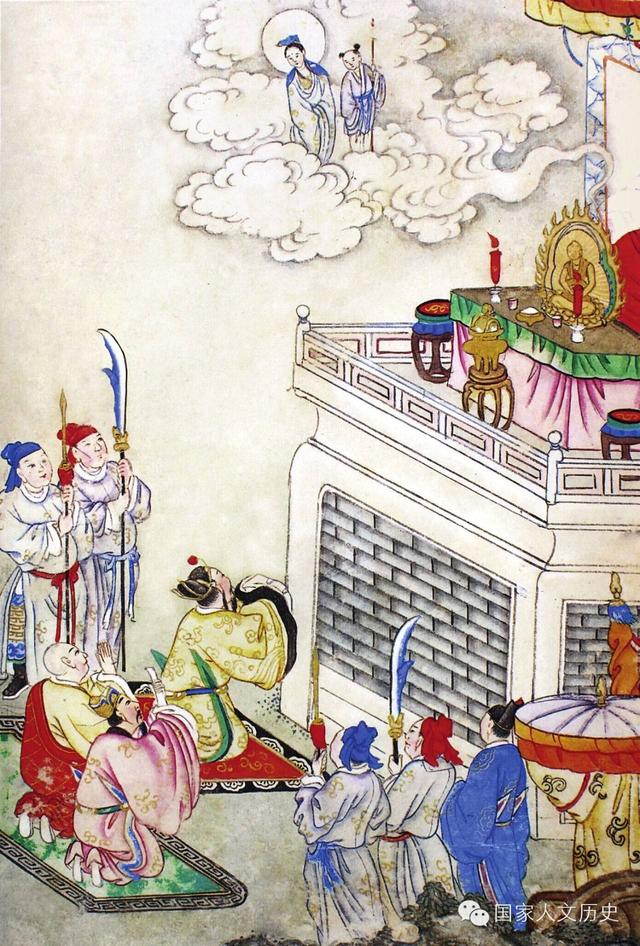 国家人文历史